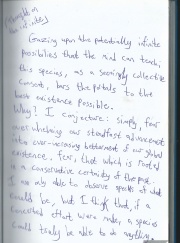 Gazing upon the potentially infinite
possibilities that the mind can tend,
this species, as a seemingly collective
consort, bars the portals to the
best existence possible.
Why? I conjecture: simply, fear
over whelming our steadfast advancement
into ever-increasing betterment of our global
existence. Fear, that which is rooted
in a conservative certainty of the past.
I am only able to observe species of what
could be, but I think that, if a
concerted effort were made, a species
could truly be able to do anything.